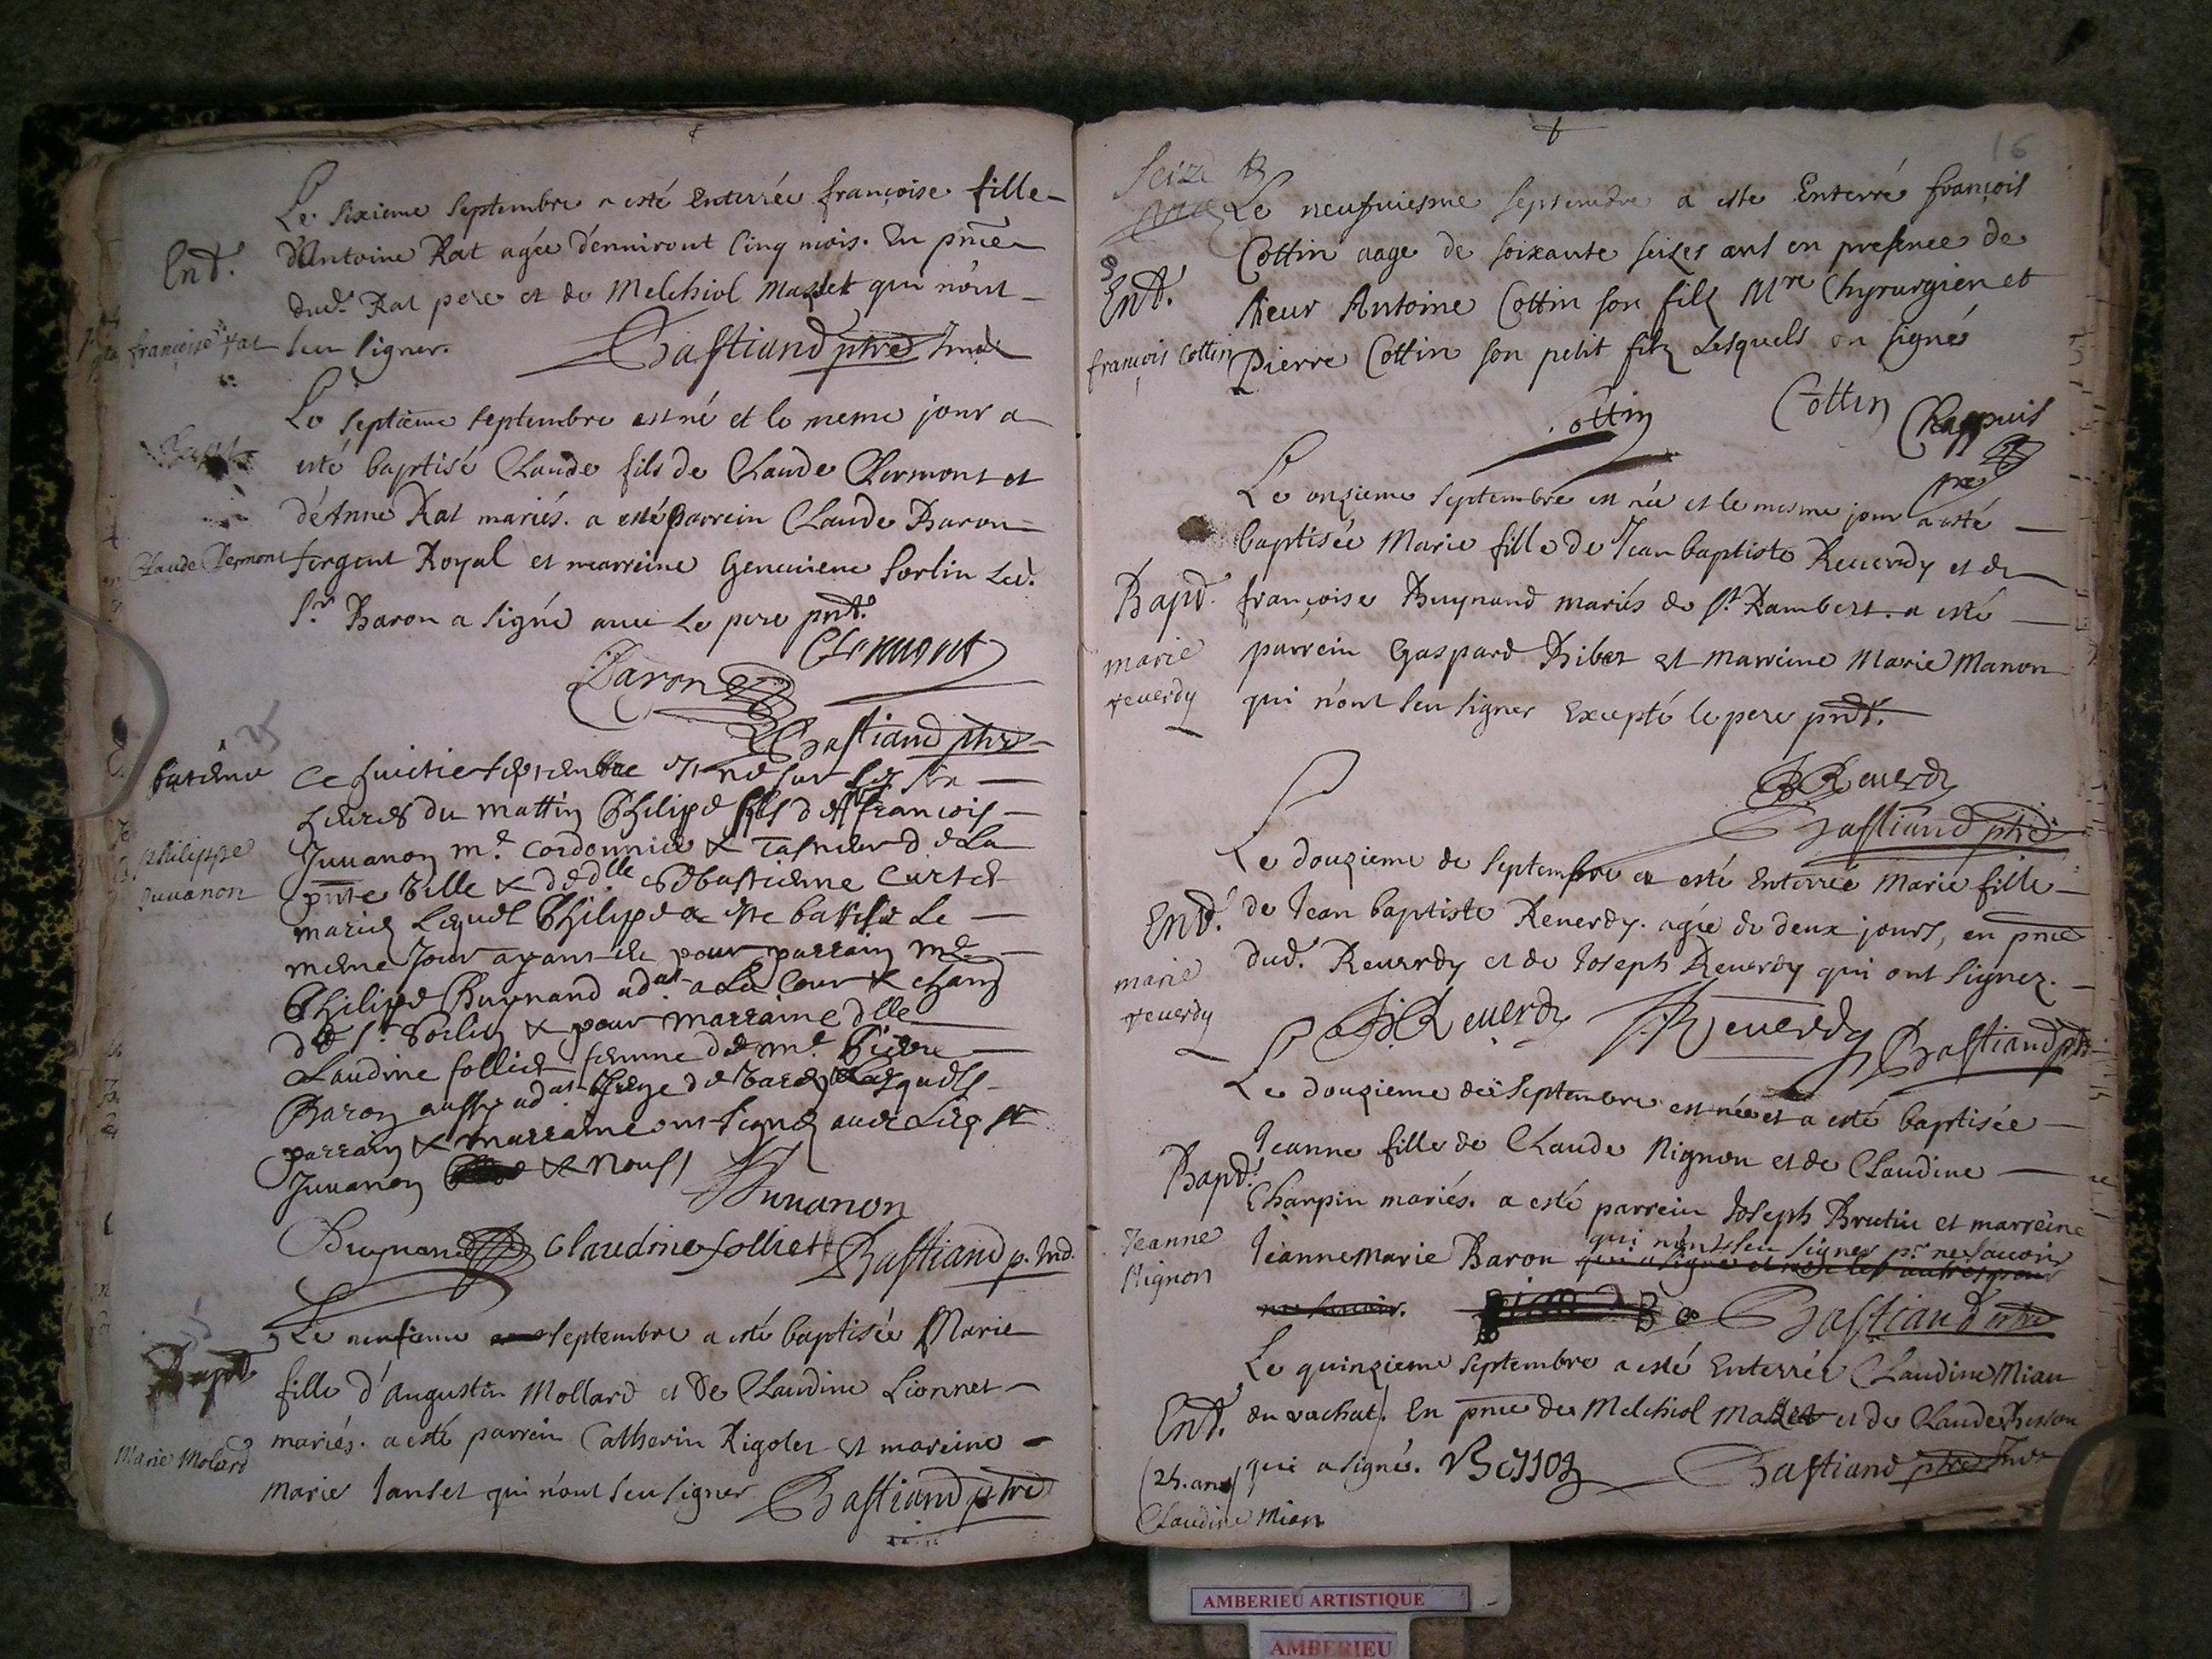 Le sixieme septembre a esté Enterrée françoise fille
Ent.
d'Antoine Rat agée d'environt Cinq mois. En pnce
dud. Rat pere et de Melchiol Masset qui n'ont
françoise rat
seu signer. Bastiand ptre
Le septieme septembre est né et le meme jour a
Bapt
esté baptisé Claude fils de Claude Clermont et
d'Anne Rat mariés. a esté parrein Claude Baron
Claude Clermont
sergent Royal et marreine Genevieve Sorlin Led.
Sr Baron a signé avec Le pere pnt.
Clermont
Baron
Bastiand ptre
25
bateme
Ce huictie septembre est né sur les six
heures du mattin Philipe fils de françois
philippe
Juuanon me. cordonnier & tasneur de La
Juuanon
pnte ville & de dlle Sebastienne Curtet
mariez Lequel Philipe a este battisé Le
mesme Jour ayant eu pour parrain me
Philipe Buynand adat a La Cour &
de St Sorlin & pour marraine dlle
Claudine folliet femme de me. Pierre
Baron aussy adat
parrain & marraine ont signez avec
Juuanon & Nous
Juuanon
Buynand Claudine folliet Bastiand p. Ind.
Le neufieme septembre a esté baptisée Marie
Bapt
fille d'augustin Mollard et de Claudine Lionnet
mariés. a esté parrein Catherin Rigolet et mareine
Marie Molard
Marie Janset qui n'ont seu signer Bastiand ptre
16
Seize
Le neufuiesme septembre a este Enterré françois
Cottin aage de soixante seizes ans en presence de
Ent.
sieur Antoine Cottin son filz Mre Chyrurgien et
françois Cottin
Pierre Cottin son petit filz Lesquels on signé
Cottin Cottin Chappuis
pre
Le onzieme septembre est née et le mesme jour a esté
baptisée Marie fille de Jean baptiste Reuerdy et de
Bapt.
françoise Buynand mariés de St. Rambert. a esté
marie
reuerdy
parrein Gaspard Ribet et marreine Marie Manon
qui n'ont seu signer Excepté le pere pnt.
JB Reuerdy
Bastiand ptre
Le douzieme de septembre a esté Enterrée Marie fille
Ent.
de Jean baptiste Reuerdy. agée de deux jours, en pnce
marie
reuerdy
dud. Reuerdy et de Joseph Reuerdy qui ont signez.
JB Reuerdy J. Reuerdy Bastiand ptr
Le douzieme de septembre est née et a esté baptisée
Bapt.
Jeanne fille de Claude Nignon et de Claudine
Charpin mariés. a esté parrein Joseph Brutin et marreine
Jeanne
Nignon
qui n'ont seu signer pr. ne sauoir
Jeanne Marie Baron qui a signé et non les autres pour
ne sauoir. Bastiand ptre
Le quinzieme septembre a esté Enterrée Claudine Mian
Ent.
du vachat. En pnce de Melchiol Masset et de Claude Besson
(25. ans)
qui a signé. Besson Bastiand ptre
Claudine Mian
AMBERIEU ARTISTIQUE
AMBERIEU